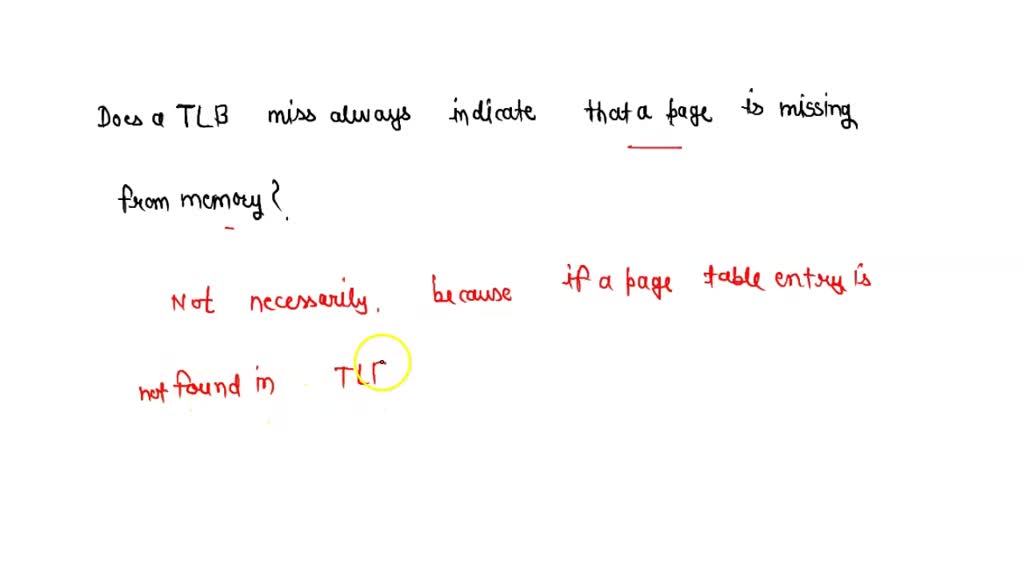 Does a TLB miss always indicate that a page is missing
from memory?
Not necessarily, because if a page table entry is
not found in TL